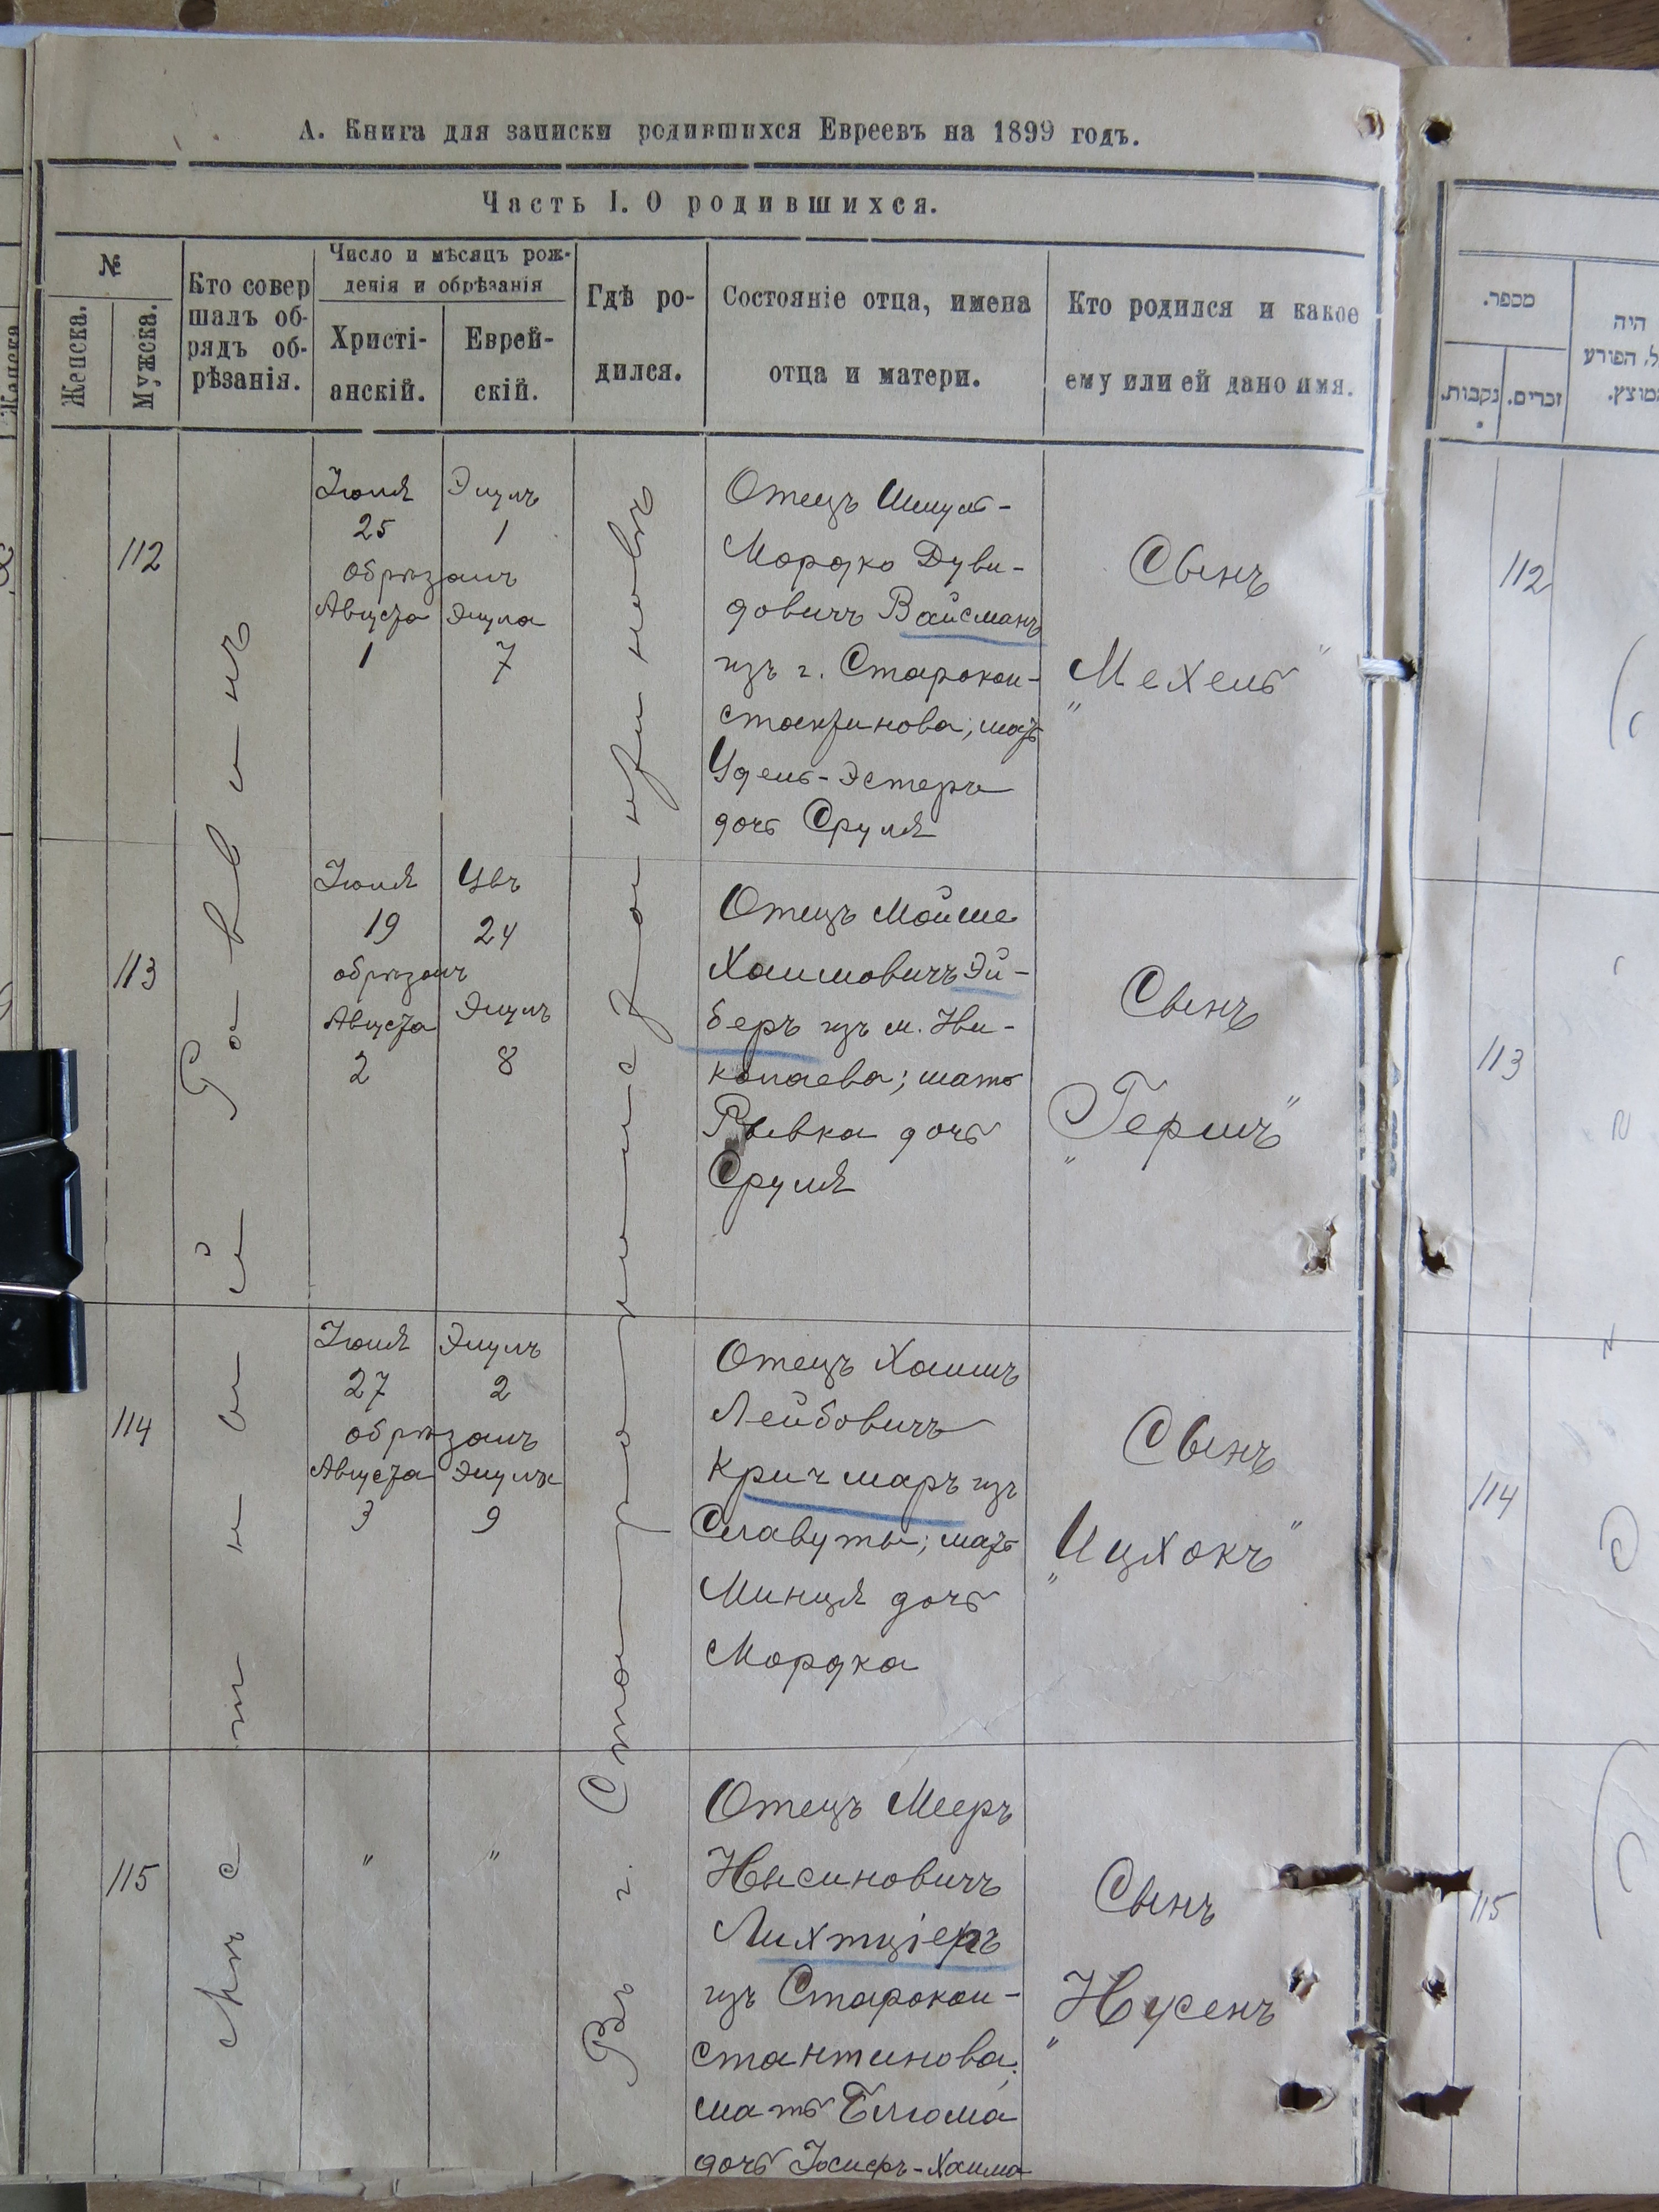 А. Книга для записки родившихся Евреевъ на 1899 годъ.
Часть I. О родившихся.
№
Женска.
Мужска.
Кто совер
шалъ об-
рядъ об-
рѣзанія.
Число и мѣсяцъ рож-
денія и обрѣзанія
Христі-
анскій.
Еврей-
скій.
Гдѣ ро-
дился.
Состояніе отца, имена
отца и матери.
Кто родился и какое
ему или ей дано имя.
Мѣстный Раввинъ
Въ г. Староконстантиновѣ
112
Іюля
25
Элулъ
1
обрѣзанъ
Августа
1
Элула
7
Отецъ Шмуль-
Мордко Дуви-
довичъ Вайсманъ
изъ г. Старокон-
стантинова; мать
Удель-Эстеръ
дочь Сруля
Сынъ
"Мехель"
113
Іюля
19
Увъ
24
обрѣзанъ
Августа
2
Элулъ
8
Отецъ Мойше
Хаимовичъ Эй-
беръ изъ м. Ни-
колаева; мать
Рывка дочь
Сруля
Сынъ
"Гершъ"
114
Іюля
27
Элулъ
2
обрѣзанъ
Августа
3
Элулъ
9
Отецъ Хаимъ
Лейбовичъ
Кричмаръ изъ
Славуты; мать
Минця дочь
Мордка
Сынъ
"Ицхокъ"
115
"
"
Отецъ Мееръ
Нысиновичъ
Лихтціеръ
изъ Старокон-
стантинова;
мать Блюма
дочь Іосифъ-Хаима
Сынъ
"Нусенъ"
מספר.
נקבות.
זכרים.
היה
הפורע
112
113
114
115